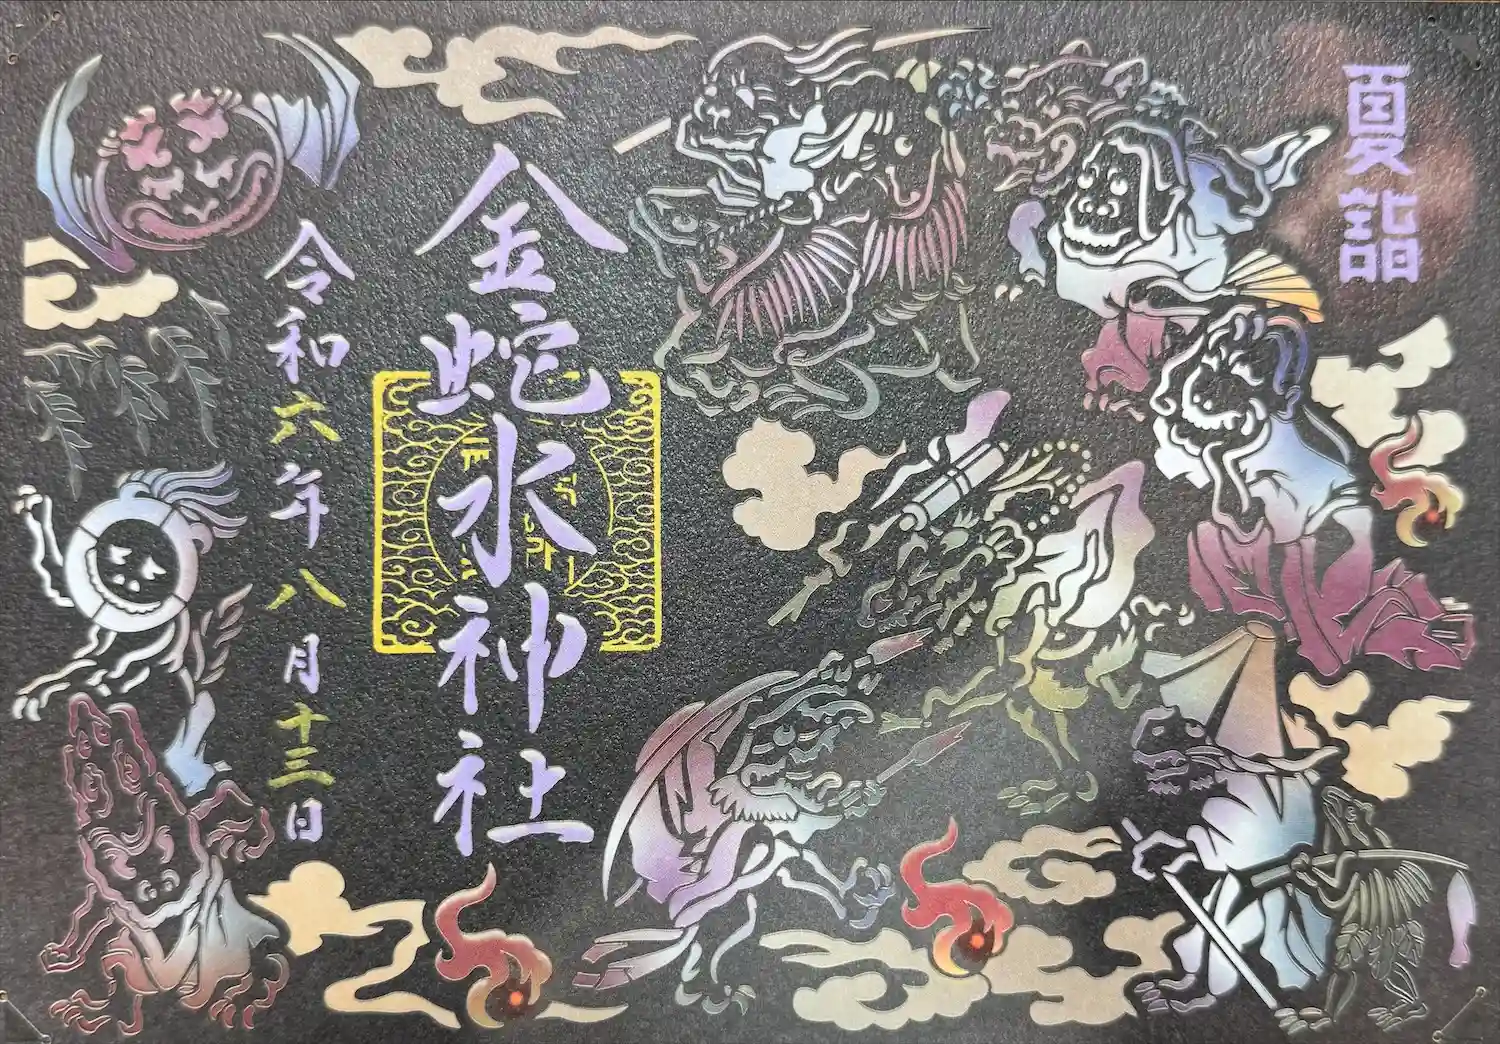 夏詣
金蛇水神社
令和六年八月十三日